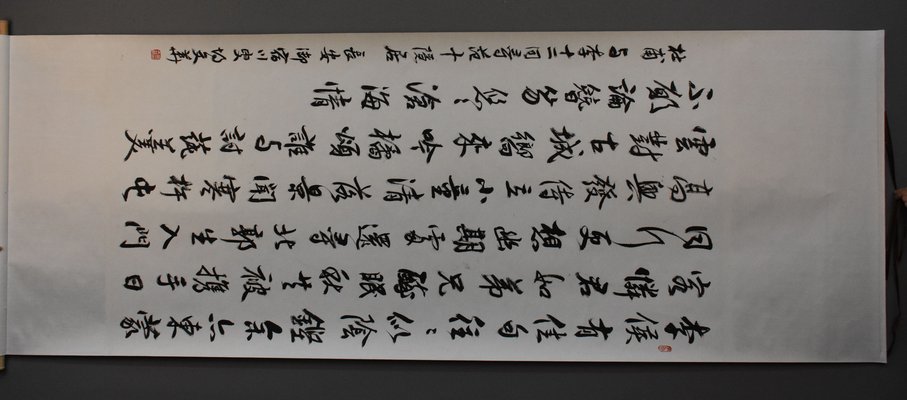 李侯有佳句往〻似陰鏗余亦東蒙
客憐君如弟兄醉眠秋共被携手日
同行更想幽期處還尋北郭生入門
高興發侍立小童清落景聞寒杵屯
雲對古城嚮來吟橘頌誰与討蓴羹
不願論簪笏悠〻滄海情
杜甫与李十二同尋范十隱居 長安御宿川史